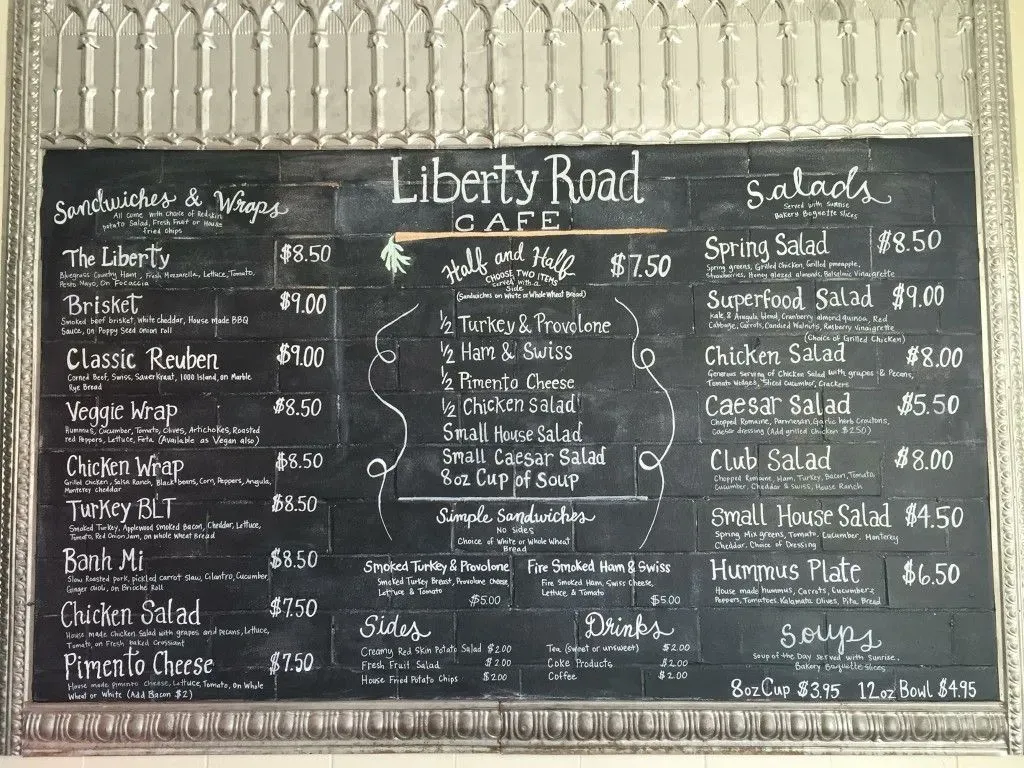 Liberty Road
CAFE
Sandwiches & Wraps
All come with choice of Redskin
potato Salad, Fresh Fruit or House
fried Chips
The Liberty $8.50
Bluegrass Country Ham, Fresh Mozzarella, Lettuce, Tomato,
Pesto Mayo, On Focaccia
Brisket $9.00
Smoked beef brisket, White cheddar, House made BBQ
Sauce, on Poppy Seed onion roll
Classic Reuben $9.00
Corned Beef, Swiss, Sauerkraut, 1000 Island, on Marble
Rye Bread
Veggie Wrap $8.50
Hummus, Cucumber, Tomato, Olives, Artichokes, Roasted
red Peppers, Lettuce, Feta (Available as Vegan also)
Chicken Wrap $8.50
Grilled chicken, Salsa Ranch, Black beans, Corn, Peppers, Arugula,
Monterey cheddar
Turkey BLT $8.50
Smoked Turkey, Applewood smoked Bacon, Cheddar, Lettuce,
Tomato, Red Onion Jam, on whole wheat Bread
Banh Mi $8.50
Slow Roasted pork, pickled carrot slaw, Cilantro, Cucumber,
Ginger aioli, on Brioche Roll
Chicken Salad $7.50
House made Chicken Salad with grapes and pecans, Lettuce,
Tomato, on Fresh baked Croissant
Pimento Cheese $7.50
House made pimento cheese, Lettuce, Tomato, On Whole
Wheat or White (Add Bacon $2)
Half and Half $7.50
CHOOSE TWO ITEMS
served with a
Side
(Sandwiches on White or Whole Wheat Bread)
1/2 Turkey & Provolone
1/2 Ham & Swiss
1/2 Pimento Cheese
1/2 Chicken Salad
Small House Salad
Small Caesar Salad
8oz Cup of Soup
Simple Sandwiches
No Sides
Choice of White or Whole Wheat
Bread
Smoked Turkey & Provolone
Smoked Turkey Breast, Provolone Cheese,
Lettuce & Tomato
$5.00
Fire Smoked Ham & Swiss
Fire Smoked Ham, Swiss Cheese,
Lettuce & Tomato
$5.00
Sides
Creamy Red Skin Potato Salad $2.00
Fresh Fruit Salad $2.00
House Fried Potato Chips $2.00
Drinks
Tea (sweet or unsweet) $2.00
Coke Products $2.00
Coffee $2.00
Salads
Served with Sunrise
Bakery Baguette slices
Spring Salad $8.50
Spring greens, Grilled chicken, Grilled pineapple,
Strawberries, Honey glazed almonds, Balsamic Vinaigrette
Superfood Salad $9.00
Kale & Arugula blend, Cranberry almond quinoa, Red
Cabbage, Carrots, Candied Walnuts, Rasberry vinaigrette
(Choice of Grilled Chicken)
Chicken Salad $8.00
Generous serving of Chicken Salad with grapes & Pecans,
Tomato Wedges, Sliced Cucumber, Crackers
Caesar Salad $5.50
Chopped Romaine, Parmesan, Garlic herb Croutons,
Caesar dressing (Add grilled chicken $2.50)
Club Salad $8.00
Chopped Romaine, Ham, Turkey, Bacon, Tomato,
Cucumber, Cheddar & Swiss, House Ranch
Small House Salad $4.50
Spring Mix greens, Tomato, Cucumber, Monterey
Cheddar, Choice of Dressing
Hummus Plate $6.50
House made hummus, Carrots, Cucumbers
Peppers, Tomatoes, Kalamata Olives, Pita Bread
Soups
Soup of the Day Served with Sunrise,
Bakery Baquette slices
8oz Cup $3.95 12oz Bowl $4.95